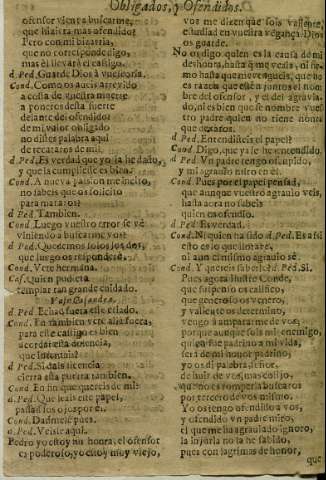 Obligados, y Ofendidos.
ofensor viene a buscarme,
que hiziera mas ofendido?
Pero con mi bizarria,
que no corresponde digo,
mas èl llevarà el castigo.
d. Ped. Guarde Dios à vueseoria.
Cond. Como os aueis atrevido
a cosa de
a poneros desta suerte
delante del ofendido?
de mi valor obligado
no dissés palabra aqui
de recataros de mi.
d. Ped. Es verdad que yo la he dado,
y que la cumpli esse es bien.
Cond. A nueva passion me incito,
no sabeis que os solicito
para mataros?
d. Ped. Tambien.
Cond. Luego vuestro error se vè
viniendo a buscar me vos?
d. Ped. Quedemos solos los dos,
que luego os responderè.
Cond. Vete hermana.
Cas. Quien pudiera
templar tan grande cuidado.
Vase Casandra.
d. Ped. Echad fuera este criado.
Cond. Tu tambien vete allà fuera,
para este castigo es bien
acordar esta dotencia,
que intentais?
d. Ped. Si dais licencia
cierra essa puerta tambien.
Cond. En fin que quereis de mi?
d. Ped. Que leais este papel,
passad los ojos por el.
Cond. Dadmele pues.
d. Ped. Veisle aqui.
Pedro yo estoy sin honra, el ofensor
es poderoso, yo estoy muy viejo,
vos me dizen que sois valiente,
estudiad en vuestra vengança. Dios
os guarde.
No es digo quien es la causa de mi
deshonra, hasta que me veais, ni fir-
mo hasta que me vengueis, que no
es razon que estèn juntos el nom-
bre del ofensor, y el del agravia-
do, ni es bien que se nombre vues-
tro padre quien no tiene honra
que dexaros.
d. Ped. Entendisteis el papel?
Cond. Digo, que ya le he entendido.
d. Ped. Vn padre tengo ofendido,
y mi agravio miro en èl.
Cond. Pues por el papel pensad,
que aunque vuestro agravio veis,
hasta aora no sabeis
quien os ofendio.
d. Ped. Es verdad.
Cond. Ni quien ha sido d. Ped. Es assi
esto es lo que llorarè,
ni aun el mismo agravio sè.
Cond. Y quereis saberle? d. Ped. Si.
Pues agora Ilustre Conde,
que si pleito os califico,
que generoso os venero,
y valiente os determino,
vengo à ampararme de vos,
porque aunque sois mi enemigo,
quien fue padrino a mi vida,
serà de mi honor padrino,
yo os di palabra, señor,
de huir de vos, mas colijo,
que no es romperla buscaros
por tercero de vos mismo.
Yo os tengo ofendido a vos,
y ofendido vn padre miro,
el que me ha agraviado ignoro,
la injuria no la he sabido,
pues con lagrimas de honor,
que